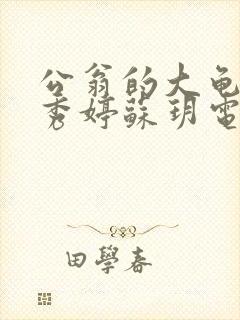 公翁的大龟
秀婷蘇玥電
田學春